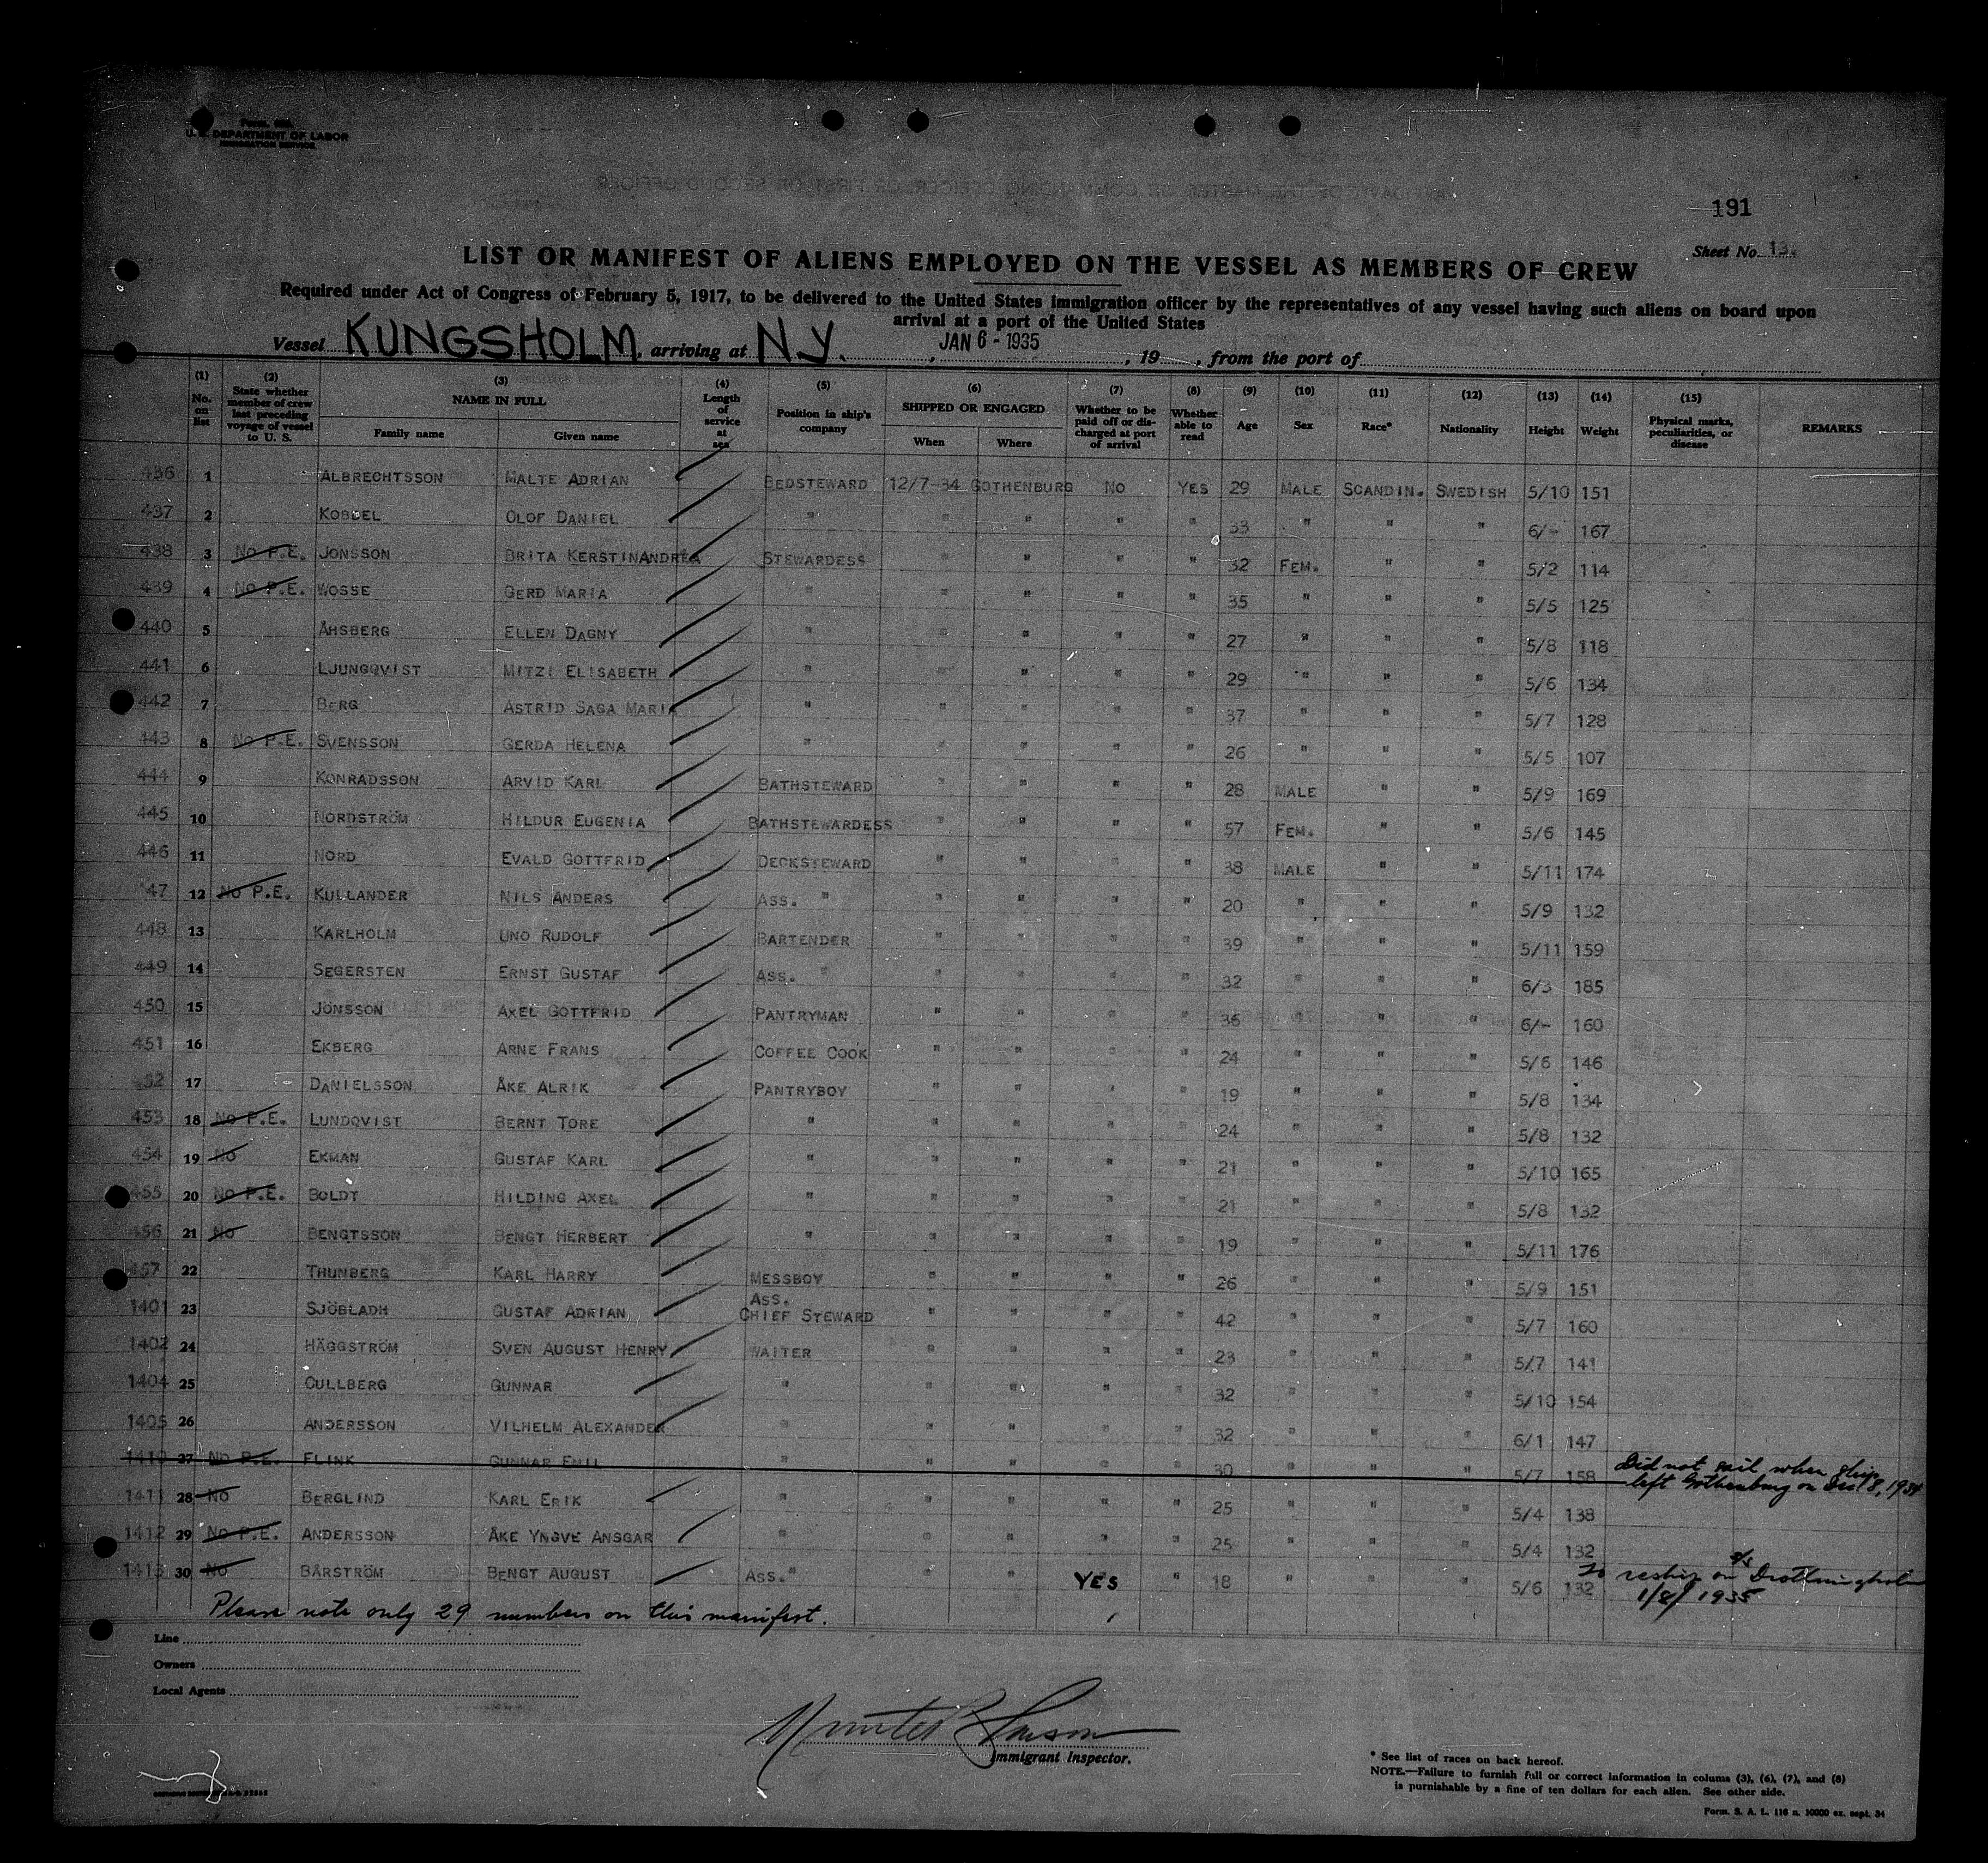 U. S. DEPARTMENT OF LABOR
IMMIGRATION SERVICE
191
Sheet No. 13.
LIST OR MANIFEST OF ALIENS EMPLOYED ON THE VESSEL AS MEMBERS OF CREW
Required under Act of Congress of February 5, 1917, to be delivered to the United States Immigration officer by the representatives of any vessel having such aliens on board upon
arrival at a port of the United States
Vessel KUNGSHOLM, arriving at N.Y. , JAN 6 - 1935 , 19 , from the port of
(1) No. on list (2) State whether member of crew last preceding voyage of vessel to U. S. (3) NAME IN FULL Family name Given name (4) Length of service at sea (5) Position in ship's company (6) SHIPPED OR ENGAGED When Where (7) Whether to be paid off or discharged at port of arrival (8) Whether able to read (9) Age (10) Sex (11) Race* (12) Nationality (13) Height (14) Weight (15) Physical marks, peculiarities, or disease REMARKS
436 1 ALBRECHTSSON MALTE ADRIAN BEDSTEWARD 12/7-34 GOTHENBURG NO YES 29 MALE SCANDIN. SWEDISH 5/10 151
437 2 OLOF DANIEL " " " " " 33 " " " 6/- 167
438 3 NO P.E. JONSSON BRITA KERSTINANDREA STEWARDESS " " " " 32 FEM. " " 5/2 114
439 4 NO P.E. WOSSE GERD MARIA " " " " " 35 " " " 5/5 125
440 5 ÅHSBERG ELLEN DAGNY " " " " " 27 " " " 5/8 118
441 6 LJUNGQVIST MITZI ELISABETH " " " " " 29 " " " 5/6 134
442 7 BERG ASTRID SAGA MARIA " " " " " 37 " " " 5/7 128
443 8 NO P.E. SVENSSON GERDA HELENA " " " " " 26 " " " 5/5 107
444 9 KONRADSSON ARVID KARL BATHSTEWARD " " " " 28 MALE " " 5/9 169
445 10 NORDSTRÖM HILDUR EUGENIA BATHSTEWARDESS " " " " 57 FEM. " " 5/6 145
446 11 NORD EVALD GOTTFRID DECKSTEWARD " " " " 38 MALE " " 5/11 174
447 12 NO P.E. KULLANDER NILS ANDERS ASS. " " " " " 20 " " " 5/9 132
448 13 KARLHOLM UNO RUDOLF BARTENDER " " " " 39 " " " 5/11 159
449 14 SEGERSTEN ERNST GUSTAF ASS. " " " " " 32 " " " 6/3 185
450 15 JÖNSSON AXEL GOTTFRID PANTRYMAN " " " " 36 " " " 6/- 160
451 16 EKBERG ARNE FRANS COFFEE COOK " " " " 24 " " " 5/6 146
452 17 DANIELSSON ÅKE ALRIK PANTRYBOY " " " " 19 " " " 5/8 134
453 18 NO P.E. LUNDQVIST BERNT TORE " " " " " 24 " " " 5/8 132
454 19 NO EKMAN GUSTAF KARL " " " " " 21 " " " 5/10 165
455 20 NO P.E. BOLDT HILDING AXEL " " " " " 21 " " " 5/8 132
456 21 NO BENGTSSON BENGT HERBERT " " " " " 19 " " " 5/11 176
457 22 THUNBERG KARL HARRY MESSBOY " " " " 26 " " " 5/9 151
1401 23 SJÖBLADH GUSTAF ADRIAN ASS. CHIEF STEWARD " " " " 42 " " " 5/7 160
1402 24 HÄGGSTRÖM SVEN AUGUST HENRY WAITER " " " " 23 " " " 5/7 141
1404 25 CULLBERG GUNNAR " " " " " 32 " " " 5/10 154
1405 26 ANDERSSON VILHELM ALEXANDER " " " " " 32 " " " 6/1 147
1410 27 NO P.E. FLINK GUNNAR EMIL " " " " " 30 " " " 5/7 158 Did not sail when ship
left Gothenburg on Dec 8, 1934
1411 28 NO BERGLIND KARL ERIK " " " " " 25 " " " 5/4 138
1412 29 NO P.E. ANDERSSON ÅKE YNGVE ANSGAR " " " " " 25 " " " 5/4 132
1413 30 NO BÅRSTRÖM BENGT AUGUST ASS." " " YES " 18 " " " 5/6 132 To reship on s/s Drottningholm
1/8/1935
Please note only 29 numbers on this manifest.
Line
Owners
Local Agents
Immigrant Inspector.
* See list of races on back hereof.
NOTE.—Failure to furnish full or correct information in colums (3), (6), (7), and (8)
is purnishable by a fine of ten dollars for each alien. See other side.
Form. S. A. L. 116 n. 10000 ex. sept. 34